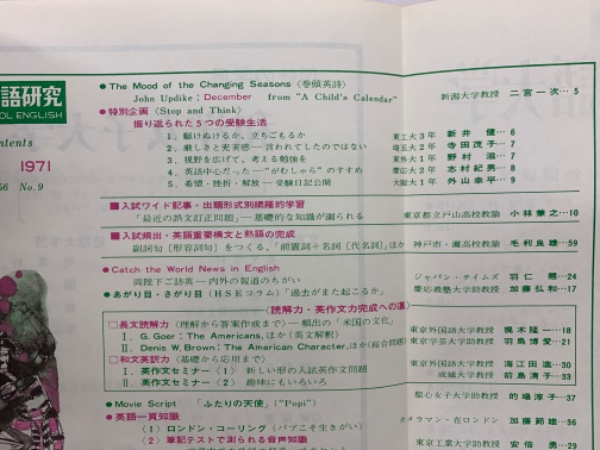 語研究
OL ENGLISH
ntents
1971
56 No.9
● The Mood of the Changing Seasons〈巻頭英詩〉
John Updike ; December from "A Child's Calendar" 新潟大学教授 二宮一次…5
●特別企画〈Stop and Think〉
振り返られた5つの受験生活
1. 駆けぬけるか, 立ちごもるか 東工大3年 新井 健…6
2. 厳しさと充実感―言われてしたのではない 埼玉大2年 寺田茂子…7
3. 視野を広げて, 考える勉強を 東外大1年 野村 滋…7
4. 英語中心だった―"がむしゃら"のすすめ 慶応大2年 志村紀男…8
5. 希望・挫折・解放―受験日記公開 大阪大1年 外山幸平…9
■入試ワイド記事・出題形式別網羅的学習
「最近の誤文訂正問題」―基礎的な知識が測られる 東京都立戸山高校教諭 小林兼之…10
■入試頻出・英語重要構文と熟語の完成
副詞句〔形容詞句〕をつくる、「前置詞+名詞〔代名詞〕」ほか 神戸市・灘高校教諭 毛利良雄…59
● Catch the World News in English
両陛下ご訪英―内外の報道のちがい ジャパン・タイムズ 羽仁 …24
●あがり目・さがり目(HSEコラム)「過去がまた起こるか」 慶応義塾大学助教授 加藤弘和…17
〈読解力・英作文力完成への道〉
□長文読解力(理解から答案作成まで)―頻出の「米国の文化」
Ⅰ. G. Goer : The Americans, ほか(英文解釈) 東京外国語大学教授 梶木隆一…18
Ⅱ. Denis W. Brown : The American Character, ほか(総合問題) 東京学芸大学助教授 羽鳥博愛…21
□和文英訳力(基礎から応用まで)
Ⅰ. 英作文セミナー〈1〉 新しい形の入試英作文問題 東京外国語大学助教授 海江田進…30
Ⅱ. 英作文セミナー〈2〉 趣味にもいろいろ 成城大学教授 前島清子…33
● Movie Script 「ふたりの天使」("Popi") 聖心女子大学助教授 的場淳子…37
●英語一頁知識
〈1〉ロンドン・コーリング(パブこそ生きがい) カメラマン・在ロンドン 加藤節雄…36
〈2〉筆記テストで測られる音声知識 東京工業大学助教授 安倍 勇…29